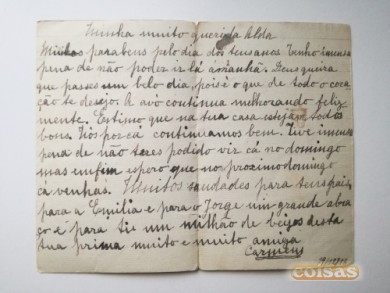 Minha muito querida Alda
Muitos parabens pelo dia dos teus anos. Tenho imensa
pena de não poder ir lá ámanhã. Deus queira
que passes um belo dia, pois é o que de todo o cora-
ção te desejo. A avó continua melhorando feliz-
mente. Estimo que na tua casa estejam todos
bons. Nós por cá continuamos bem. Tive imensa
pena de não teres podido vir cá no domingo
mas emfim espero que no proximo domingo
cá venhas. Muitos saudades para teus pais,
para a Emilia e para o Jorge um grande abra-
ço e para ti um milhão de beijos desta
tua prima muito e muito amiga
Carmens
coisas